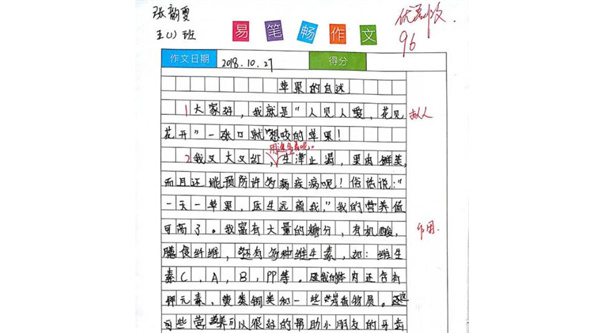 张韵雯
五(1)班
易笔畅作文
优
96
作文日期 2018.10.27 得分
苹果的自述
1 大家好，我就是"人见人爱，花见
花开"一张口就想咬的苹果！
2 我又大又红，生津止渴，果肉鲜美，
而且还能预防许多疾病呢！俗话说："
一天一苹果，医生远离我，"我的营养值
可高了。我富有大量的糖分，有机酸，
膳食纤维，还有多种维生素，如：维生
素C，A，B，PP等。我的体内还含有
钾元素，黄类铜类和一些营养物质。
营养可以很好的帮助小朋友的牙齿
作用。